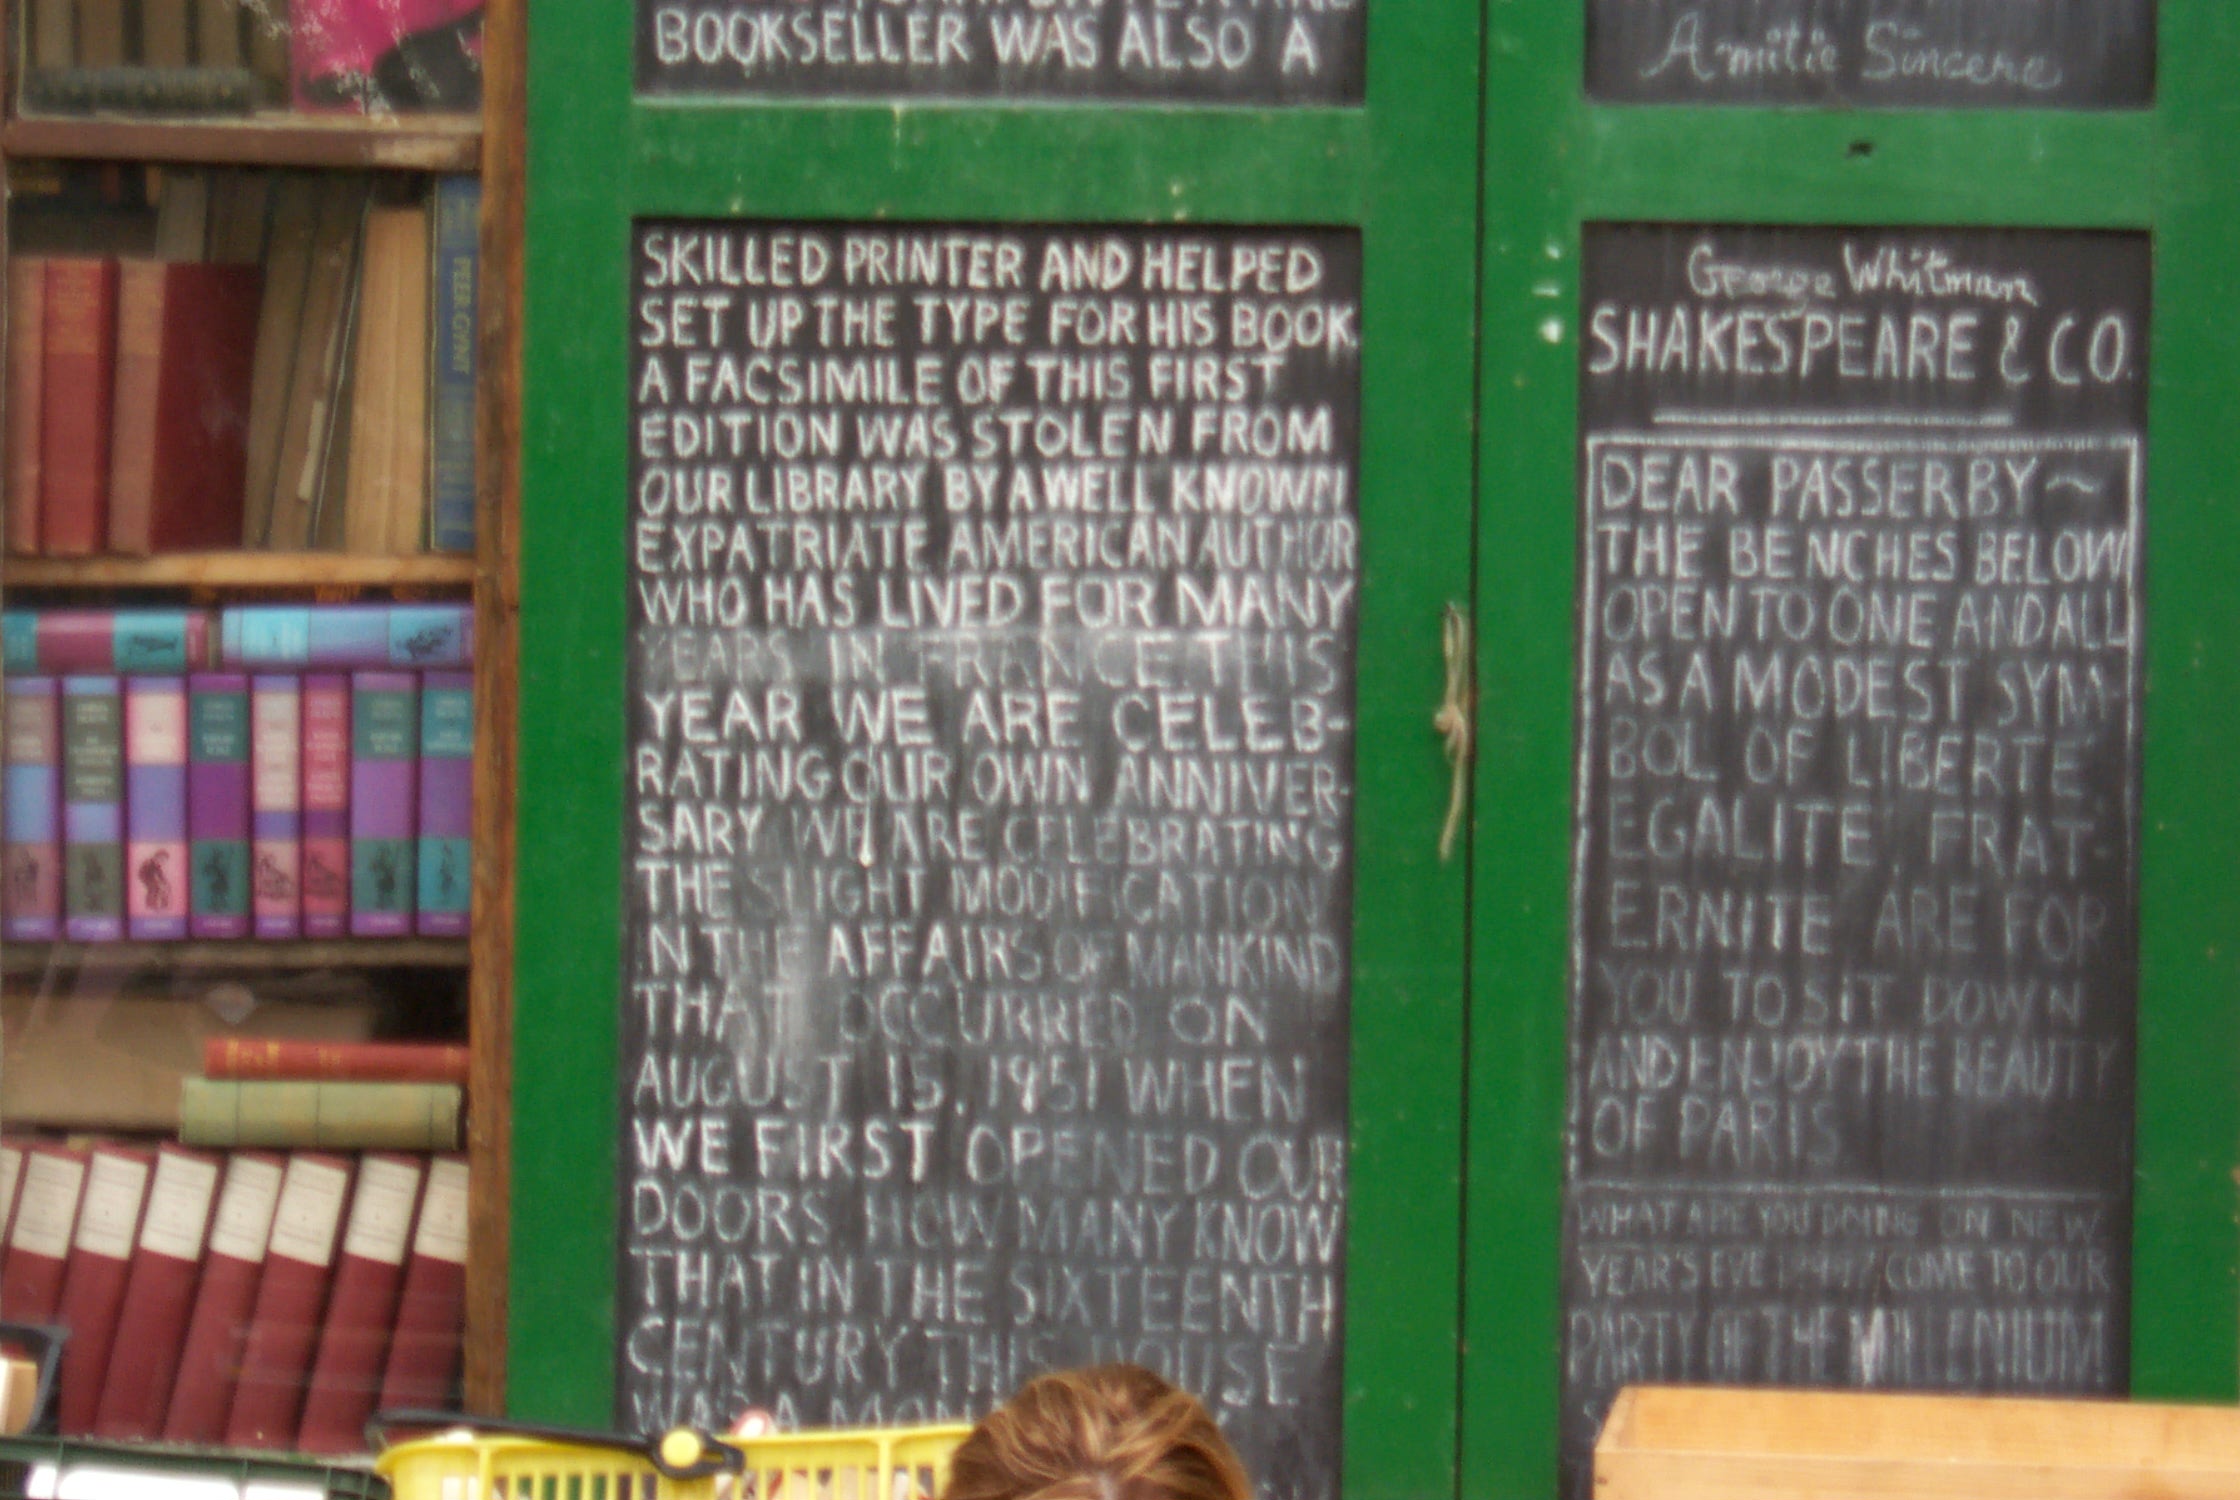 BOOKSELLER WAS ALSO A
SKILLED PRINTER AND HELPED
SET UP THE TYPE FOR HIS BOOK.
A FACSIMILE OF THIS FIRST
EDITION WAS STOLEN FROM
OUR LIBRARY BY A WELL KNOWN
EXPATRIATE AMERICAN AUTHOR
WHO HAS LIVED FOR MANY
YEARS IN FRANCE THIS
YEAR WE ARE CELEB-
RATING OUR OWN ANNIVER-
SARY WE ARE CELEBRATING
THE SLIGHT MODIFICATION
IN THE AFFAIRS OF MANKIND
THAT OCCURRED ON
AUGUST 15, 1951 WHEN
WE FIRST OPENED OUR
DOORS HOW MANY KNOW
THAT IN THE SIXTEENTH
CENTURY THIS HOUSE
WAS A
Amitie Sincere
George Whitman
SHAKESPEARE & CO.
DEAR PASSERBY ~
THE BENCHES BELOW
OPEN TO ONE AND ALL
AS A MODEST SYM-
BOL OF LIBERTE
EGALITE FRAT-
ERNITE ARE FOR
YOU TO SIT DOWN
AND ENJOY THE BEAUTY
OF PARIS
WHAT ARE YOU DOING ON NEW
YEAR'S EVE COME TO OUR
PARTY OF THE MILLENIUM
PEER GYNT